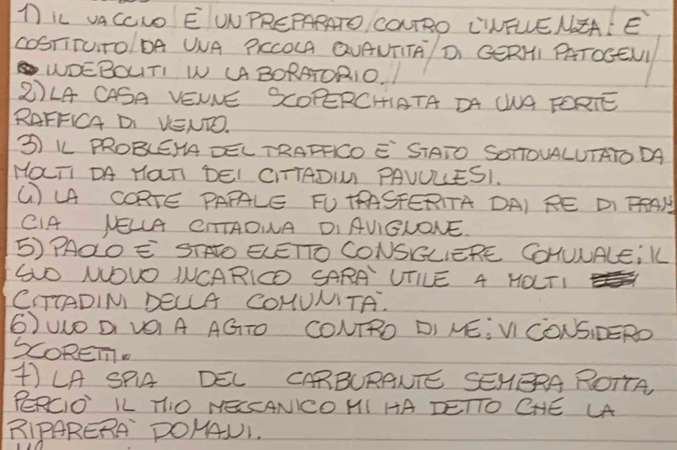 1) IL VACCINO È UN PREPARATO CONTRO L'INFLUENZA: È
COSTITUITO/DA UNA PICCOLA QUANTITÀ/DI GERMI PATOGENI/
INDEBOLITI IN LABORATORIO.//
2) LA CASA VENNE SCOPERCHIATA DA UNA FORTE
RAFFICA DI VENTO.
3) IL PROBLEMA DEL TRAFFICO È STATO SOTTOVALUTATO DA
MOLTI DA MOLTI DEI CITTADINI PAVULLESI.
4) LA CORTE PAPALE FU TRASFERITA DAI RE DI FRAN
CIA NELLA CITTADINA DI AVIGNONE.
5) PAOLO È STATO ELETTO CONSIGLIERE COMUNALE; IL
SUO NUOVO INCARICO SARÀ UTILE A MOLTI
CITTADINI DELLA COMUNITÀ.
6) UNO DI VOI A AGITO CONTRO DI ME; VI CONSIDERO
SCORETTI.
7) LA SPIA DEL CARBURANTE SEMBRA ROTTA,
PERCIÒ IL MIO MECCANICO MI HA DETTO CHE LA
RIPARERÀ DOMANI.